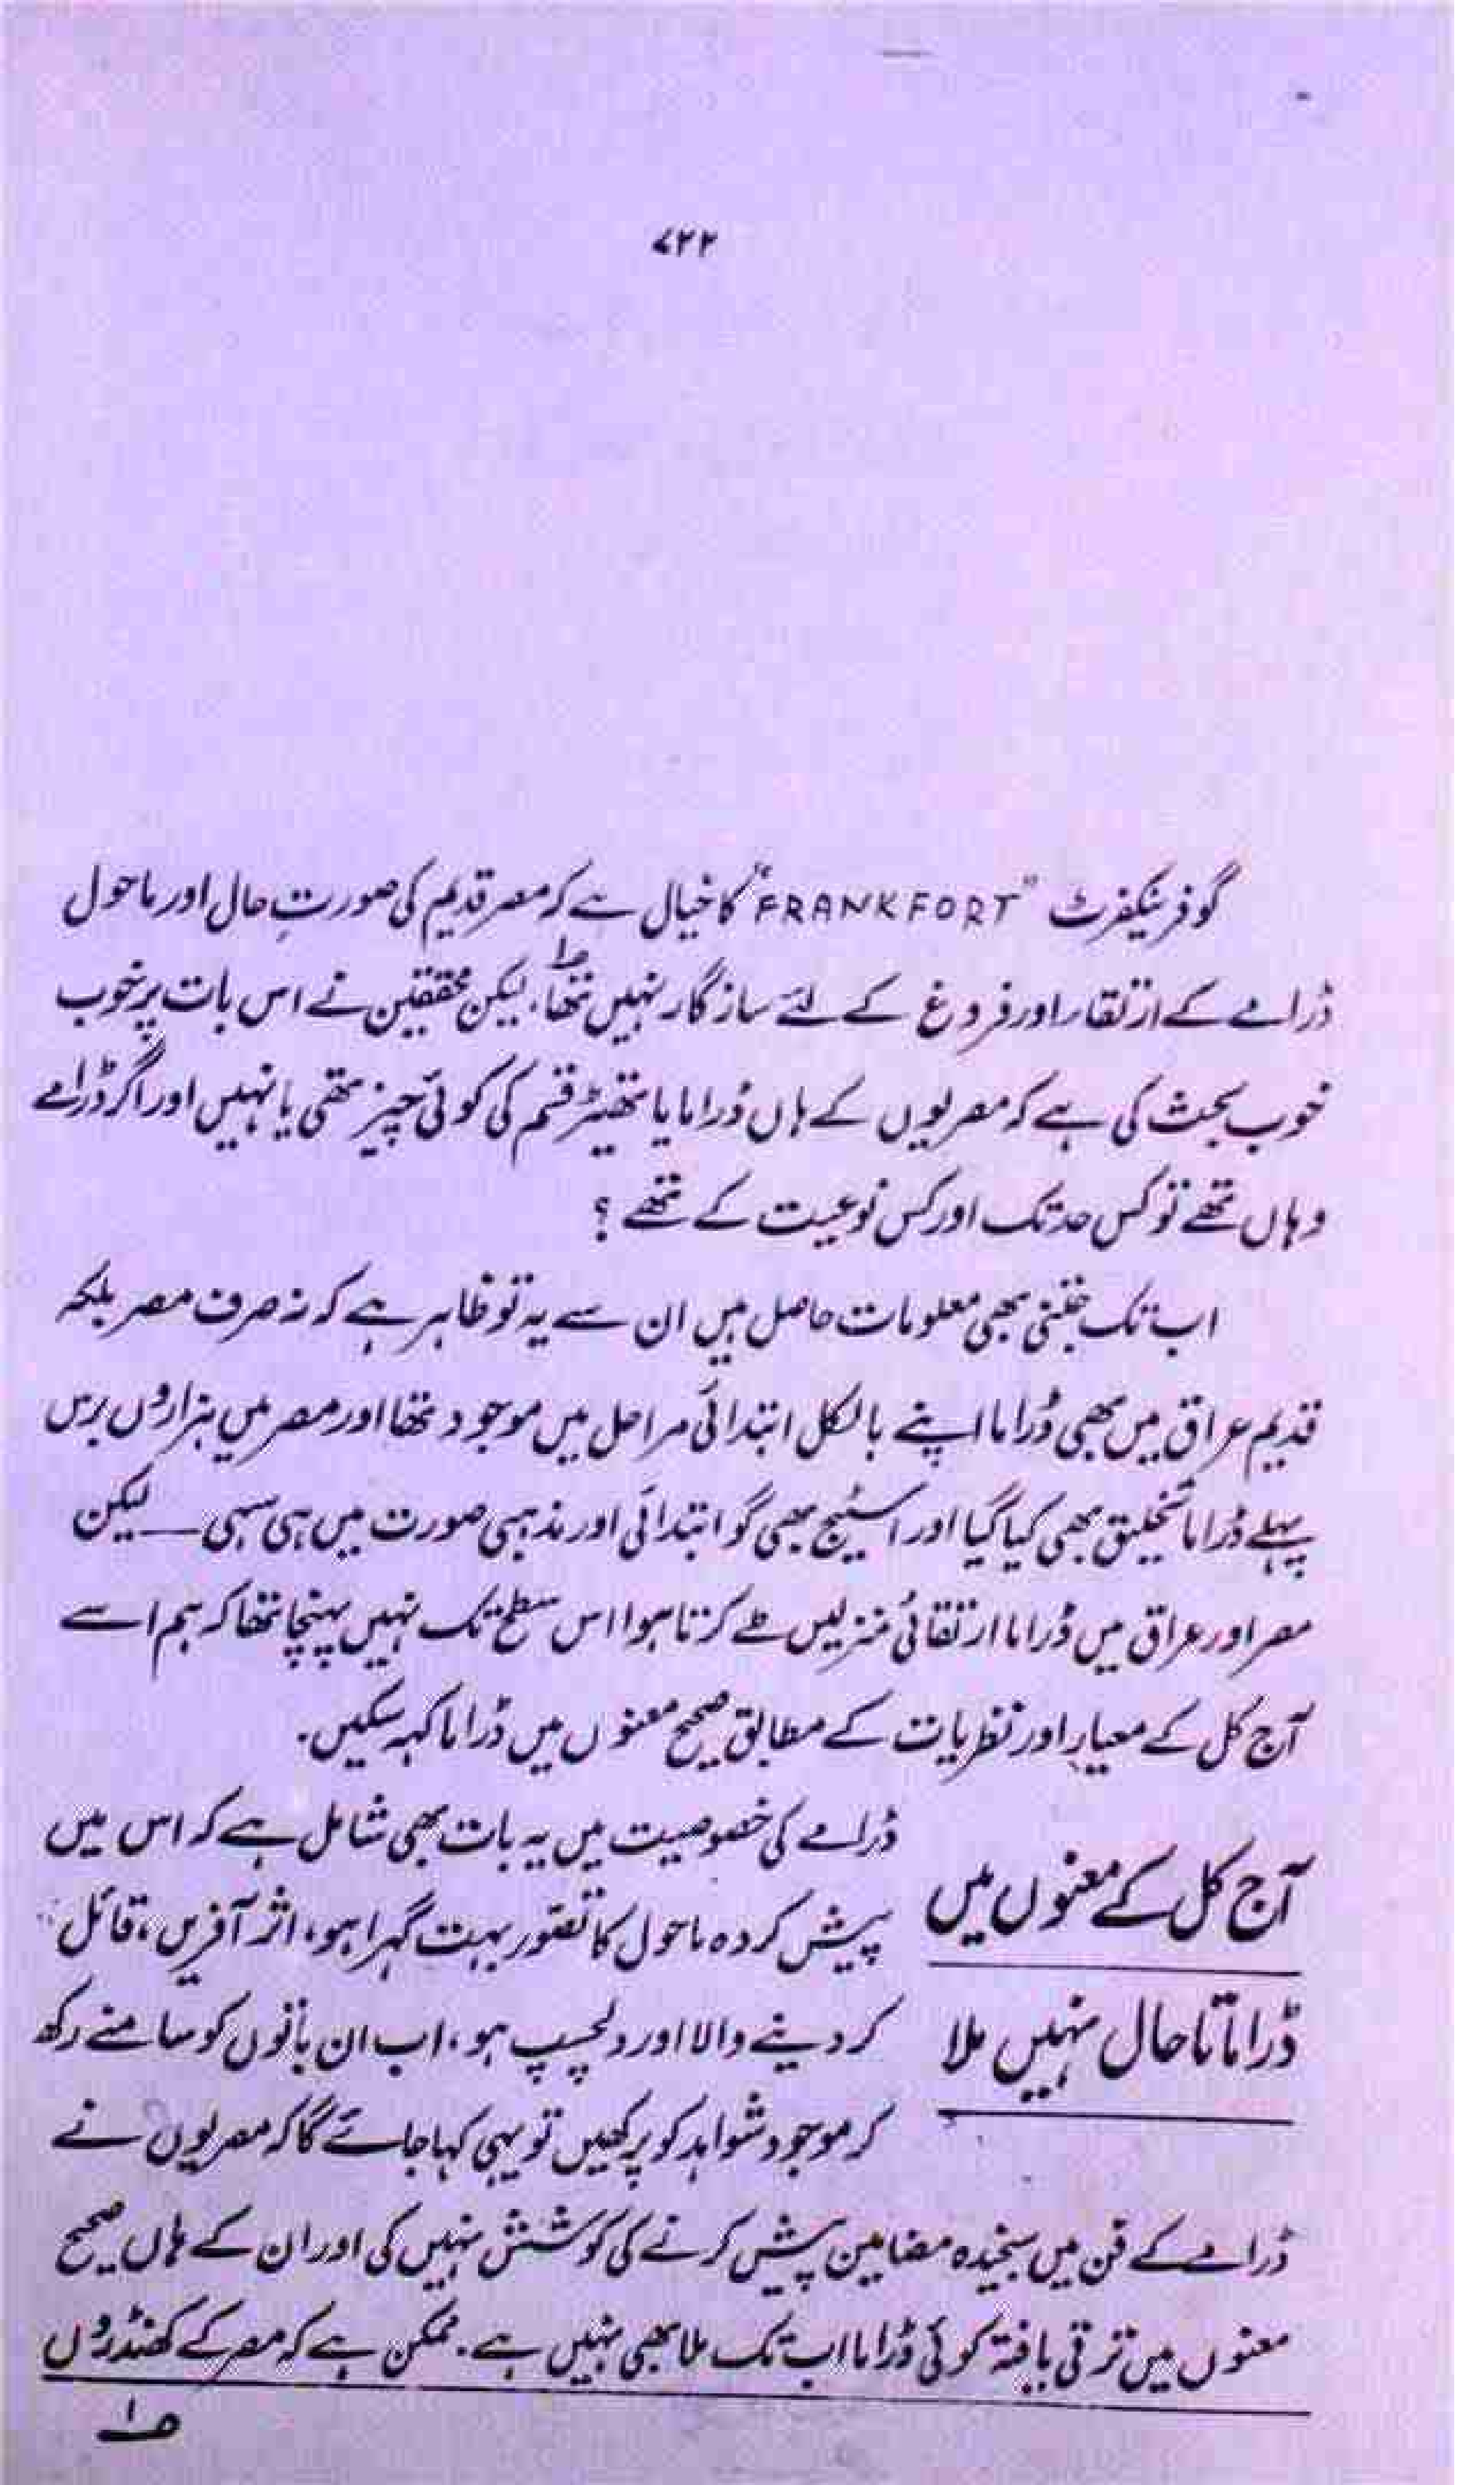 ۷۲۲
گو فرینکفرٹ "FRANKFORT" کا خیال ہے کہ مصر قدیم کی صورتِ حال اور ماحول
ڈرامے کے ارتقار اور فروغ کے لئے سازگار نہیں تھا، لیکن محققین نے اس بات پر خوب
خوب بحث کی ہے کہ مصریوں کے ہاں ڈراما یا تھیٹر قسم کی کوئی چیز تھی یا نہیں اور اگر ڈرامے
وہاں تھے تو کس حد تک اور کس نوعیت کے تھے ؟
اب تک جتنی بھی معلومات حاصل ہیں ان سے یہ تو ظاہر ہے کہ نہ صرف مصر بلکہ
قدیم عراق میں بھی ڈراما اپنے بالکل ابتدائی مراحل میں موجود تھا اور مصر میں ہزاروں برس
پہلے ڈراما تخلیق بھی کیا گیا اور اسٹیج بھی گو ابتدائی اور مذہبی صورت میں ہی سہی — لیکن
مصر اور عراق میں ڈراما ارتقائی منزلیں طے کرتا ہوا اس سطح تک نہیں پہنچا تھا کہ ہم اسے
آج کل کے معیار اور نظریات کے مطابق صحیح معنوں میں ڈراما کہہ سکیں۔
آج کل کے معنوں میں
ڈراما تا حال نہیں ملا
ڈرامے کی خصوصیت میں یہ بات بھی شامل ہے کہ اس میں
پیش کردہ ماحول کا تصور بہت گہرا ہو، اثر آفریں، قائل
کر دینے والا اور دلچسپ ہو، اب ان باتوں کو سامنے رکھ
کر موجود شواہد کو پرکھیں تو یہی کہا جائے گا کہ مصریوں نے
ڈرامے کے فن میں سنجیدہ مضامین پیش کرنے کی کوشش نہیں کی اور ان کے ہاں صحیح
معنوں میں ترقی یافتہ کوئی ڈراما اب تک ملا بھی نہیں ہے۔ ممکن ہے کہ مصر کے کھنڈروں